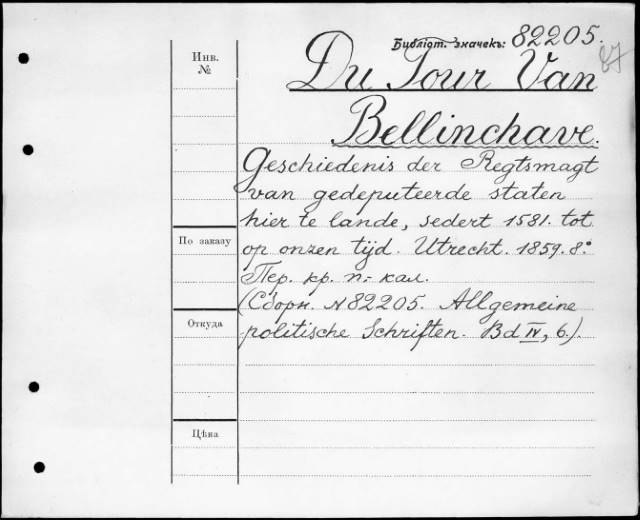 Библіот. значекъ: 82205.
87
Инв.
№
Du Tour Van
Bellinchave.
Geschiedenis der Regtsmagt
van gedeputeerde staten
hier te lande, sedert 1581. tot
По заказу
op onzen tijd. Utrecht. 1859. 8º
Пер. кр. п.- кал.
(Сборн. №82205. Allgemeine
Откуда
politische Schriften. Bd IV, 6.).
Цѣна